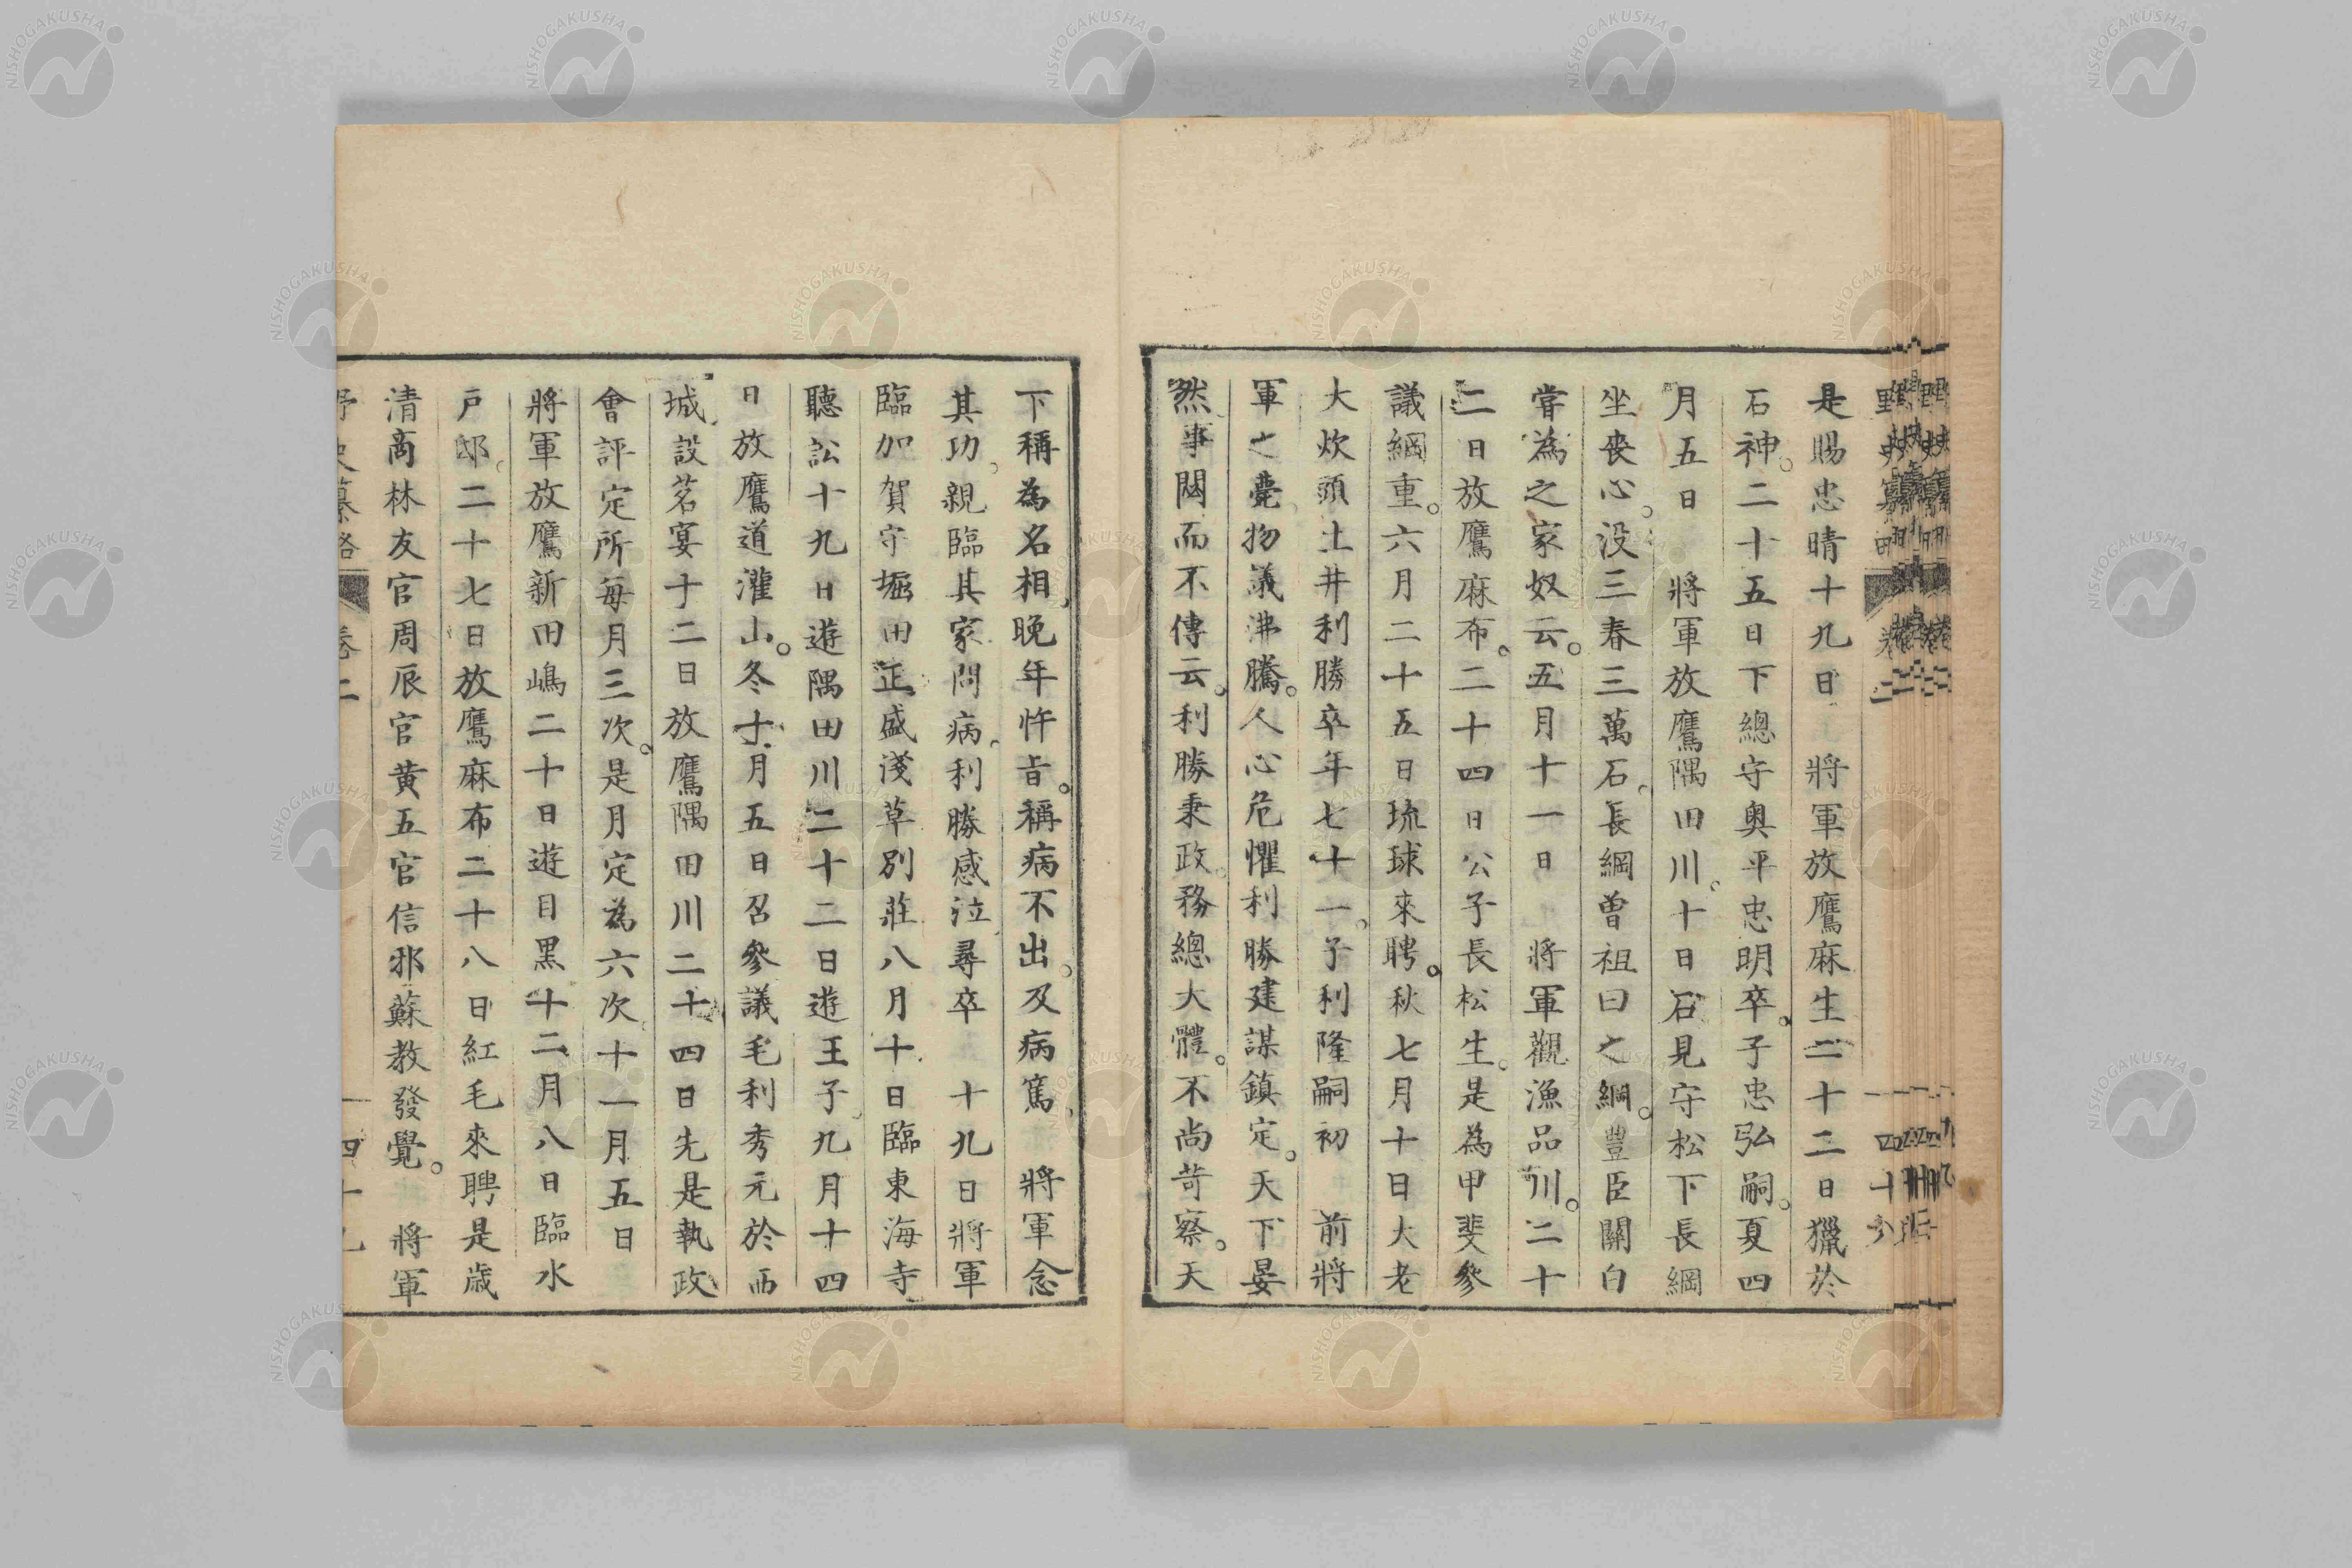 是賜忠晴十九日　將軍放鷹麻生二十二日獵於
石神。二十五日下總守奥平忠明卒。子忠弘嗣。夏四
月五日　將軍放鷹隅田川。十日石見守松下長綱
坐喪心。没三春三萬石。長綱曽祖曰之綱。豐臣關白
嘗為之家奴云。五月十一日　將軍觀漁品川。二十
二日放鷹麻布。二十四日公子長松生。是為甲斐參
議綱重。六月二十五日琉球來聘。秋七月十日大老
大炊頭土井利勝卒年七十一。子利隆嗣初　前將
軍之薨。物議沸騰。人心危懼利勝建謀鎮定。天下晏
然。事閟而不傳云。利勝秉政。務總大體。不尚苛察。天
下稱為名相。晩年忤旨。稱病不出。及病篤。　將軍念
其功。親臨其家問病。利勝感泣。尋卒　十九日將軍
臨加賀守堀田正盛淺草別莊八月十日臨東海寺
聽訟十九日遊隅田川二十二日遊王子。九月十四
日放鷹道灌山。冬十月五日召參議毛利秀元於西
城。設茗宴十二日放鷹隅田川二十四日先是執政
會評定所每月三次。是月定為六次。十一月五日
將軍放鷹新田嶋二十日遊目黑十二月八日臨水
戸邸。二十七日放鷹麻布二十八日紅毛來聘是歳
清商林友官周辰官黄五官信邪蘇教發覺。　將軍